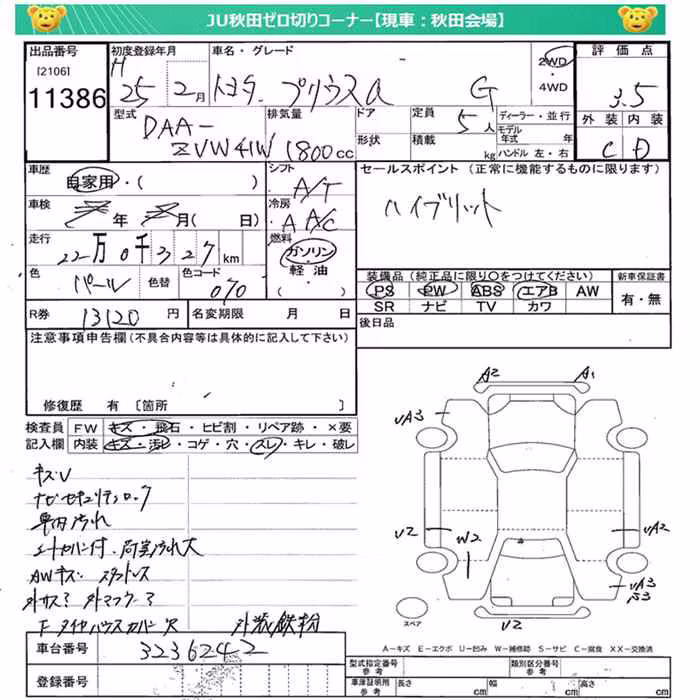 JU秋田ゼロ切りコーナー【現車：秋田会場】
出品番号 初度登録年月 車名・グレード 評価点
[2106] H 2WD
11386 25 2月 トヨタ プリウスα G ・4WD 3.5
型式 排気量 ドア 定員 ディーラー・並行 外装 内装
DAA- 5人 モデル年式 年 C D
ZVW41W 1800cc 形状 積載 kg ハンドル 左・右
車歴 シフト セールスポイント（正常に機能するものに限ります）
自家用・( ) A/T ハイブリット
車検 年 月( 日) 冷房 A A/C
走行 22万0千327km 燃料 ガソリン
色 パール 色替 色コード 070 ・軽油・( )
装備品（純正品に限り○をつけてください） 新車保証書
PS PW ABS エアB AW 有・無
SR ナビ TV カワ
R券 13120円 名変期限 月 日 後日品
注意事項申告欄(不具合内容等は具体的に記入して下さい)
修復歴 有〔箇所 〕
検査員 FW キズ・飛石・ヒビ割・リペア跡・×要
記入欄 内装 キズ・汚レ・コゲ・穴・スレ・キレ・破レ
A2 A1
UA3
キズU
ナビセキュリティロック
車内汚れ
シートカバー付、荷室汚れ大
U2 W2 UA2
AWキズ スタットレス
UA3
外サス? 外マフラー?
Fタイヤハウスカバー欠 外装鉄粉
スペア U2
A－キズ E－エクボ U－凹み W－補修跡 S－サビ C－腐食 XX－交換済
車台番号 3236242
型式指定番号 参考 類別区分番号 参考
登録番号 車庫証明用 参考 長さ cm 幅 cm 高さ cm